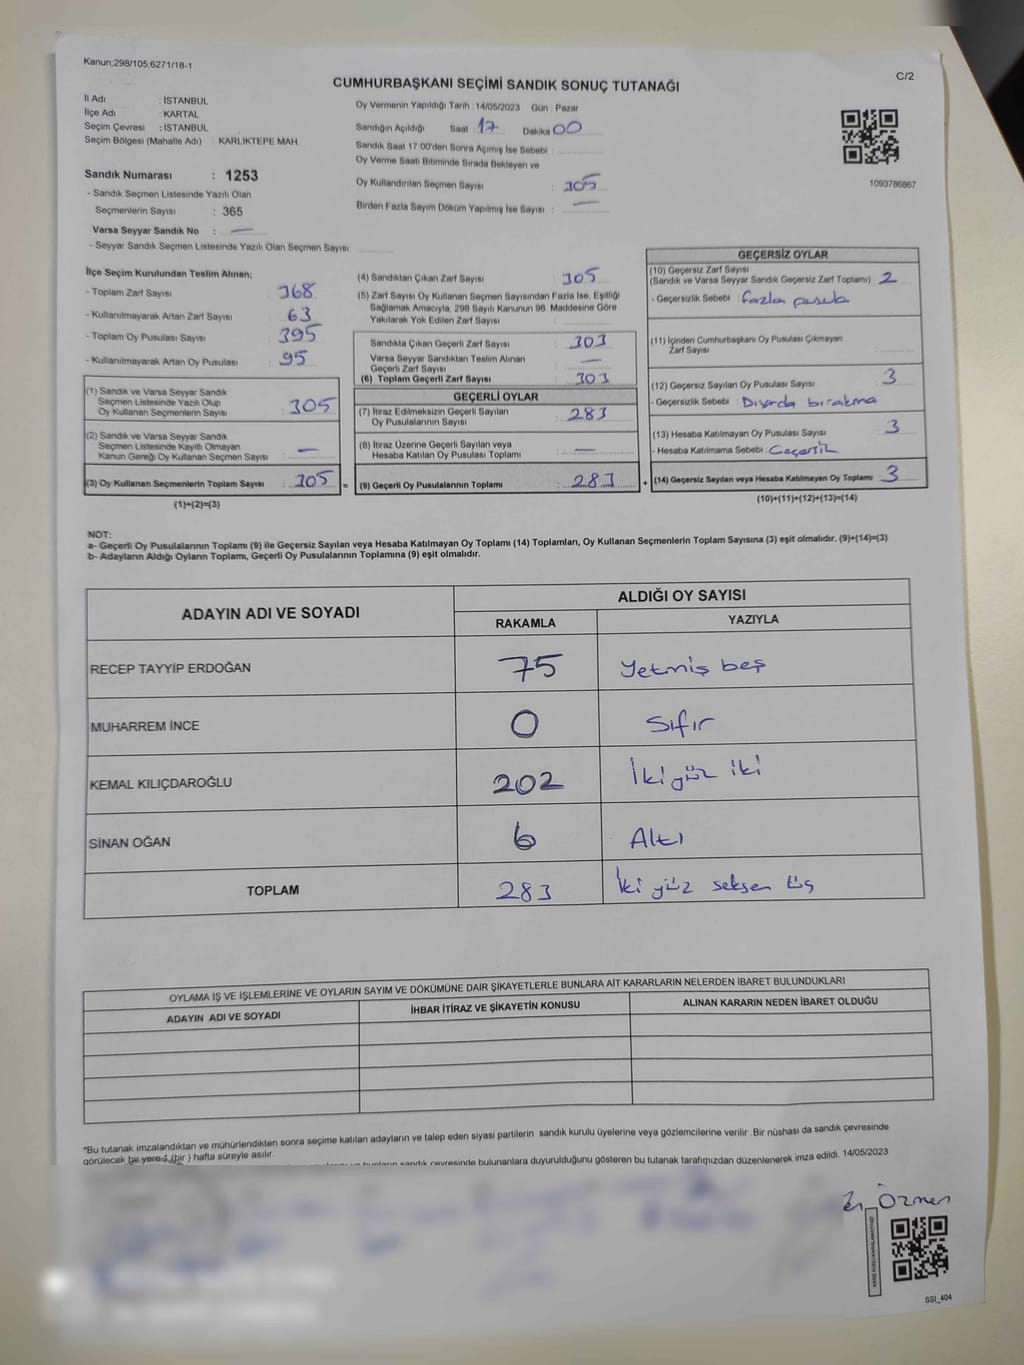 Kanun;298/105,6271/18-1
C/2
CUMHURBAŞKANI SEÇİMİ SANDIK SONUÇ TUTANAĞI
İl Adı : İSTANBUL
İlçe Adı : KARTAL
Seçim Çevresi : İSTANBUL
Seçim Bölgesi (Mahalle Adı) : KARLIKTEPE MAH.
Sandık Numarası : 1253
- Sandık Seçmen Listesinde Yazılı Olan
Seçmenlerin Sayısı : 365
Varsa Seyyar Sandık No : —
- Seyyar Sandık Seçmen Listesinde Yazılı Olan Seçmen Sayısı:
Oy Vermenin Yapıldığı Tarih : 14/05/2023 Gün : Pazar
Sandığın Açıldığı Saat 17 Dakika 00
Sandık Saat 17:00'den Sonra Açımış İse Sebebi :
Oy Verme Saati Bitiminde Sırada Bekleyen ve
Oy Kullandırılan Seçmen Sayısı : 305
Birden Fazla Sayım Döküm Yapılmış İse Sayısı : —
1093786867
İlçe Seçim Kurulundan Teslim Alınan;
- Toplam Zarf Sayısı : 368
- Kullanılmayarak Artan Zarf Sayısı : 63
- Toplam Oy Pusulası Sayısı : 395
- Kullanılmayarak Artan Oy Pusulası : 95
(1) Sandık ve Varsa Seyyar Sandık
Seçmen Listesinde Yazılı Olup
Oy Kullanan Seçmenlerin Sayısı : 305
(2) Sandık ve Varsa Seyyar Sandık
Seçmen Listesinde Kayıtlı Olmayan
Kanun Gereği Oy Kullanan Seçmen Sayısı : —
(3) Oy Kullanan Seçmenlerin Toplam Sayısı : 305 =
(1)+(2)=(3)
(4) Sandıktan Çıkan Zarf Sayısı : 305
(5) Zarf Sayısı Oy Kullanan Seçmen Sayısından Fazla İse, Eşitliği
Sağlamak Amacıyla, 298 Sayılı Kanunun 98. Maddesine Göre
Yakılarak Yok Edilen Zarf Sayısı :
Sandıkta Çıkan Geçerli Zarf Sayısı : 303
Varsa Seyyar Sandıktan Teslim Alınan
Geçerli Zarf Sayısı : —
(6) Toplam Geçerli Zarf Sayısı : 303
GEÇERLİ OYLAR
(7) İtiraz Edilmeksizin Geçerli Sayılan
Oy Pusulalarının Sayısı : 283
(8) İtiraz Üzerine Geçerli Sayılan veya
Hesaba Katılan Oy Pusulası Toplamı : —
(9) Geçerli Oy Pusulalarının Toplamı : 283 +
GEÇERSİZ OYLAR
(10) Geçersiz Zarf Sayısı
(Sandık ve Varsa Seyyar Sandık Geçersiz Zarf Toplamı) : 2
- Geçersizlik Sebebi : fazla pusula
(11) İçinden Cumhurbaşkanı Oy Pusulası Çıkmayan
Zarf Sayısı :
(12) Geçersiz Sayılan Oy Pusulası Sayısı : 3
- Geçersizlik Sebebi : Dışarda bırakma
(13) Hesaba Katılmayan Oy Pusulası Sayısı : 3
- Hesaba Katılmama Sebebi : Geçersiz
(14) Geçersiz Sayılan veya Hesaba Katılmayan Oy Toplamı : 3
(10)+(11)+(12)+(13)=(14)
NOT:
a- Geçerli Oy Pusulalarının Toplamı (9) ile Geçersiz Sayılan veya Hesaba Katılmayan Oy Toplamı (14) Toplamları, Oy Kullanan Seçmenlerin Toplam Sayısına (3) eşit olmalıdır. (9)+(14)=(3)
b- Adayların Aldığı Oyların Toplamı, Geçerli Oy Pusulalarının Toplamına (9) eşit olmalıdır.
ADAYIN ADI VE SOYADI
ALDIĞI OY SAYISI
RAKAMLA YAZIYLA
RECEP TAYYİP ERDOĞAN 75 Yetmiş beş
MUHARREM İNCE 0 Sıfır
KEMAL KILIÇDAROĞLU 202 İki yüz iki
SİNAN OĞAN 6 Altı
TOPLAM 283 İki yüz seksen üç
OYLAMA İŞ VE İŞLEMLERİNE VE OYLARIN SAYIM VE DÖKÜMÜNE DAİR ŞİKAYETLERLE BUNLARA AİT KARARLARIN NELERDEN İBARET BULUNDUKLARI
ADAYIN ADI VE SOYADI İHBAR İTİRAZ VE ŞİKAYETİN KONUSU ALINAN KARARIN NEDEN İBARET OLDUĞU
*Bu tutanak imzalandıktan ve mühürlendikten sonra seçime katılan adayların ve talep eden siyasi partilerin sandık kurulu üyelerine veya gözlemcilerine verilir .Bir nüshası da sandık çevresinde
görülecek bir yere 1 (bir ) hafta süreyle asılır.
sandık çevresinde bulunanlara duyurulduğunu gösteren bu tutanak tarafımızdan düzenlenerek imza edildi. 14/05/2023
Özmen
SSI_404